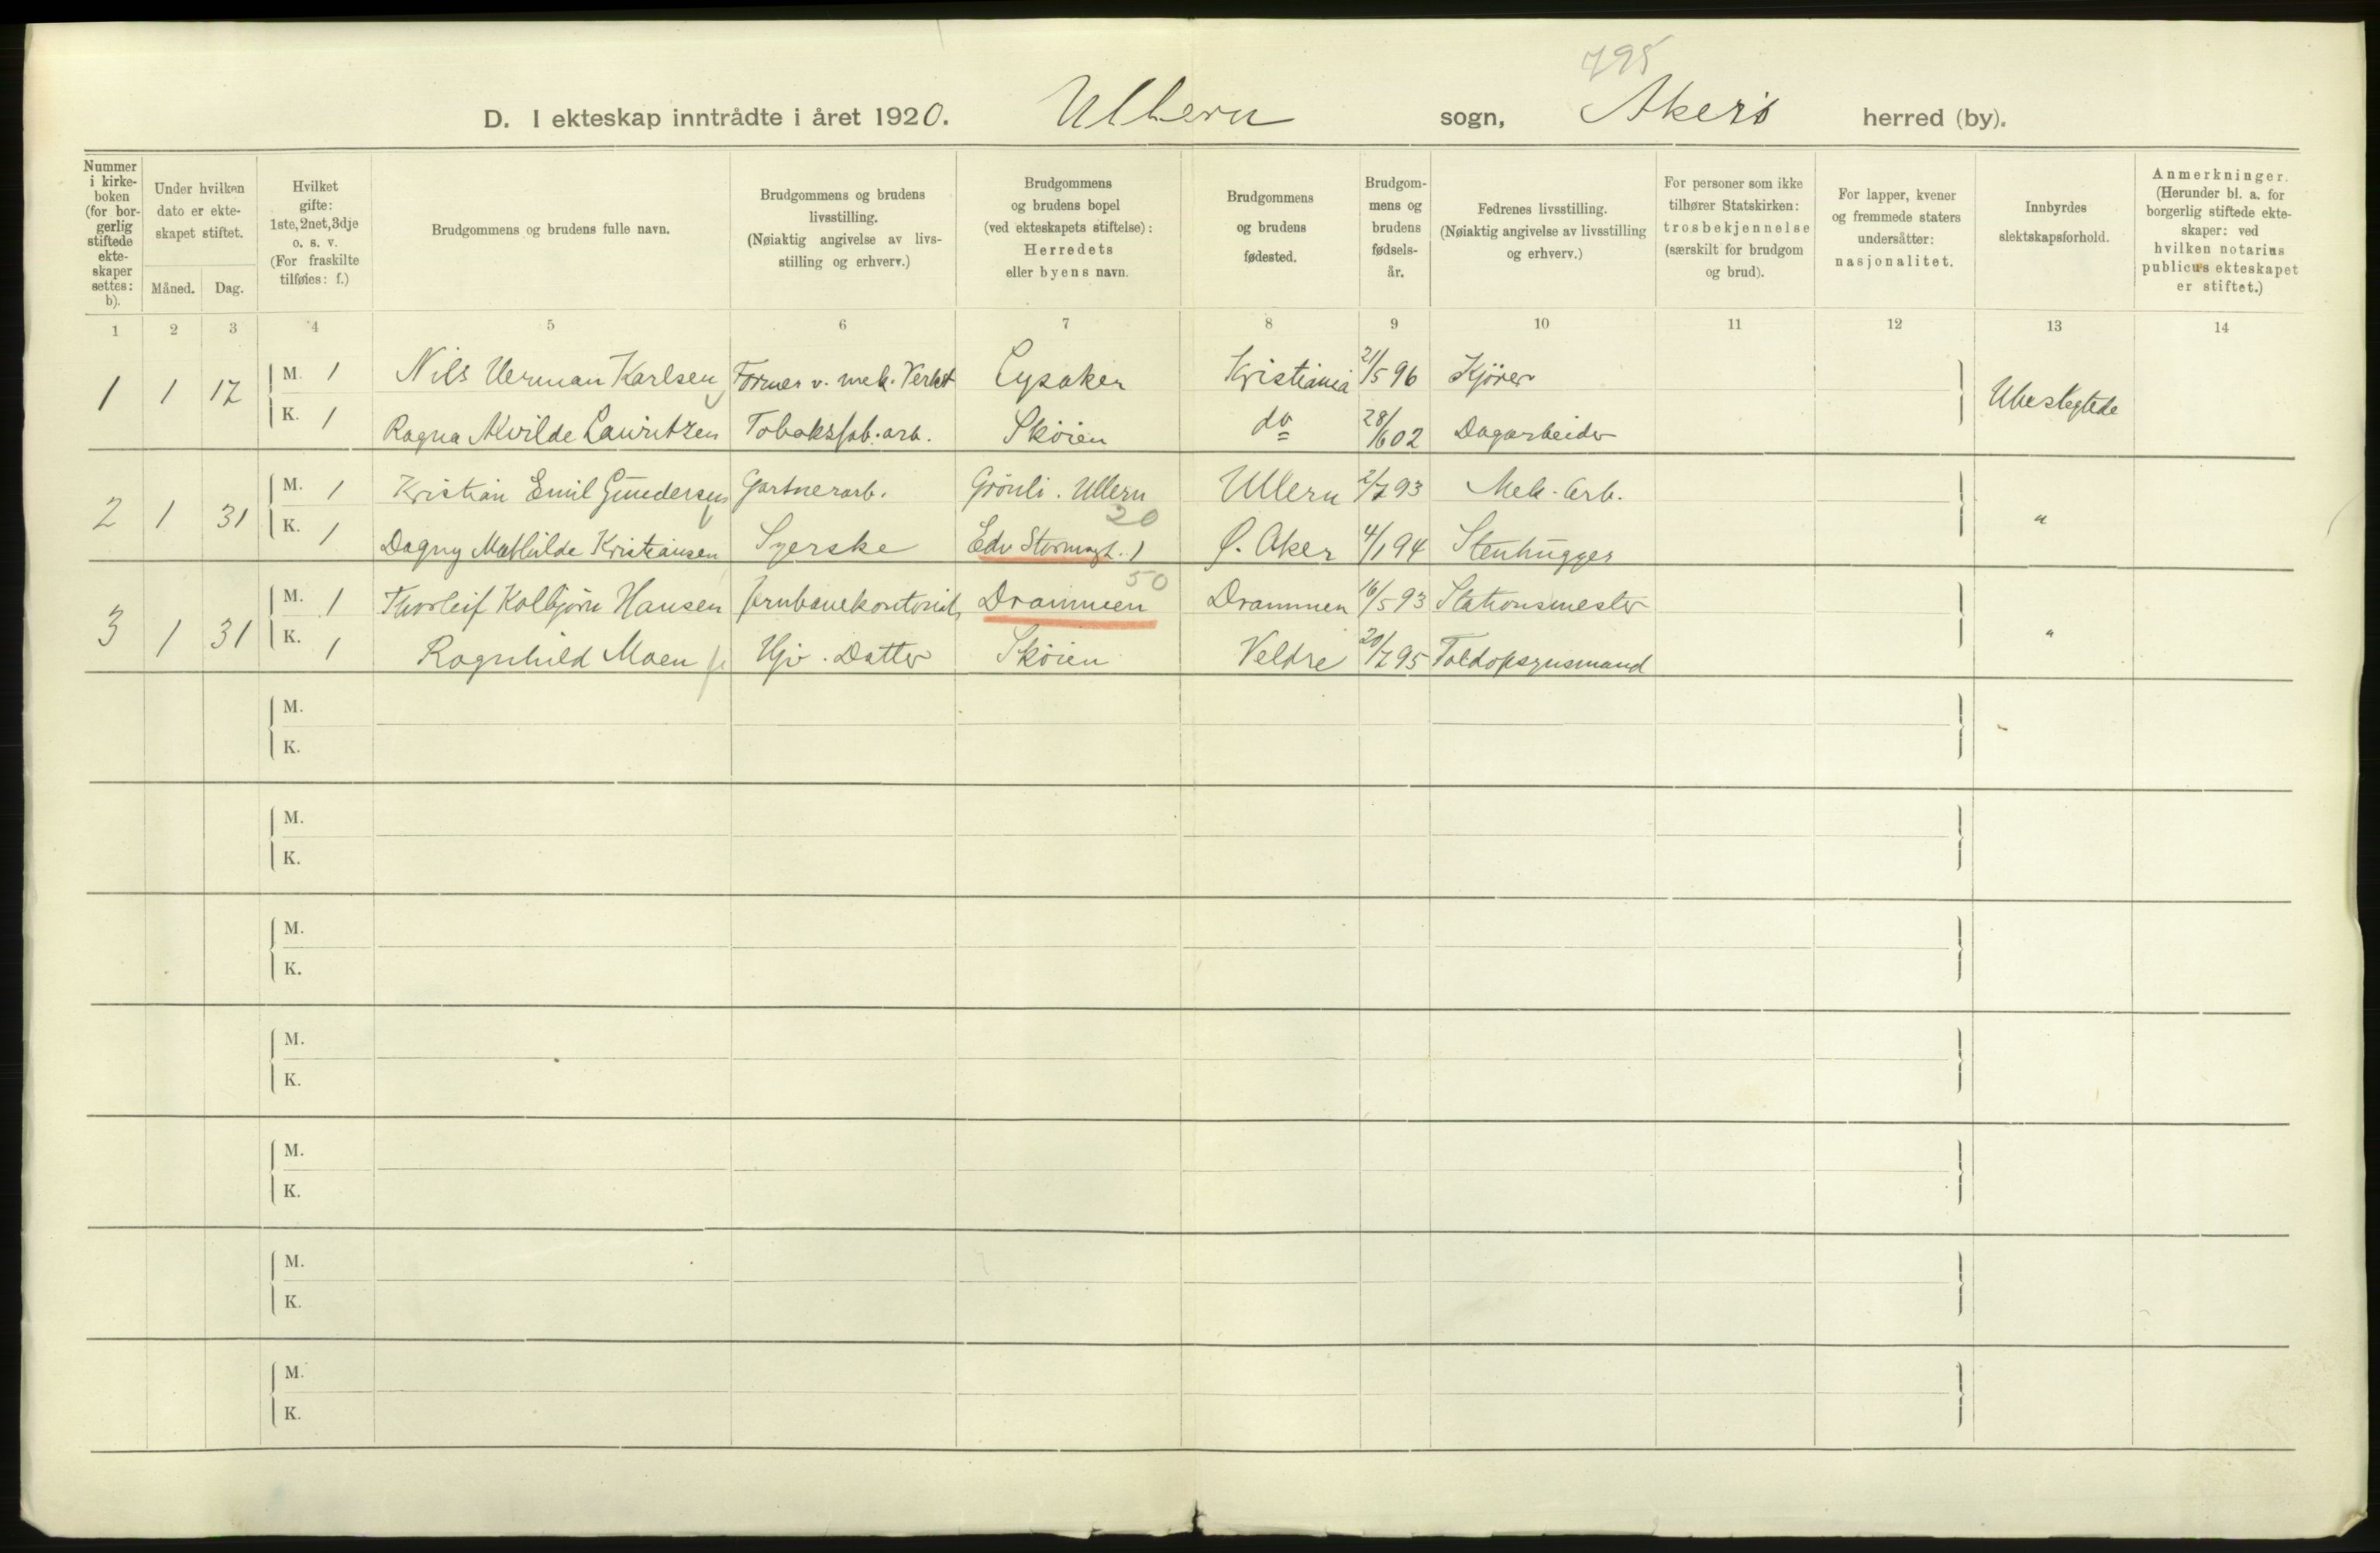 795
D. I ekteskap inntrådte i året 1920. Ullern sogn, Akers herred (by).
Nummer i kirke-boken (for bor-gerlig stiftede ekte-skaper settes: b).
Under hvilken dato er ekte-skapet stiftet.
Måned. Dag.
Hvilket gifte: 1ste, 2net, 3dje o. s. v. (For fraskilte tilføies: f.)
Brudgommens og brudens fulle navn.
Brudgommens og brudens livsstilling. (Nøiaktig angivelse av livs-stilling og erhverv.)
Brudgommens og brudens bopel (ved ekteskapets stiftelse): Herredets eller byens navn.
Brudgommens og brudens fødested.
Brudgom-mens og brudens fødsels-år.
Fedrenes livsstilling. (Nøiaktig angivelse av livsstilling og erhverv.)
For personer som ikke tilhører Statskirken: trosbekjennelse (særskilt for brudgom og brud).
For lapper, kvener og fremmede staters undersåtter: nasjonalitet.
Innbyrdes slektskapsforhold.
Anmerkninger. (Herunder bl. a. for borgerlig stiftede ekte-skaper: ved hvilken notarius publicus ekteskapet er stiftet.)
1 2 3 4 5 6 7 8 9 10 11 12 13 14
1 1 17 M. 1 Nils Herman Karlsen Former v. mek. Verkst Lysaker Kristiania 21/5 96 Kjörer Ubeslegtede
K. 1 Ragna Alvilde Lauritzen Tobaksfab. arb. Sköien do 28/6 02 Dagarbeider
2 1 31 M. 1 Kristian Emil Gundersen Gartnerarb. Grönli. Ullern Ullern 2/7 93 Mek. Arb. "
20
K. 1 Dagny Mathilde Kristiansen Syerske Edv Stormsgt. 1 Ø. Aker 4/1 94 Stenhugger
50
3 1 31 M. 1 Thorleif Kolbjørn Hansen Jernbanekontorist Drammen Drammen 16/5 93 Stationsmester "
K. 1 Ragnhild Moen Hjv. Datter Sköien Veldre 20/7 95 Toldopsynsmand
M.
K.
M.
K.
M.
K.
M.
K.
M.
K.
M.
K.
M.
K.